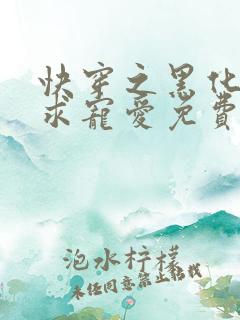 快穿之黑化
求寵愛免費
泡水柠檬
未经同意禁止转载